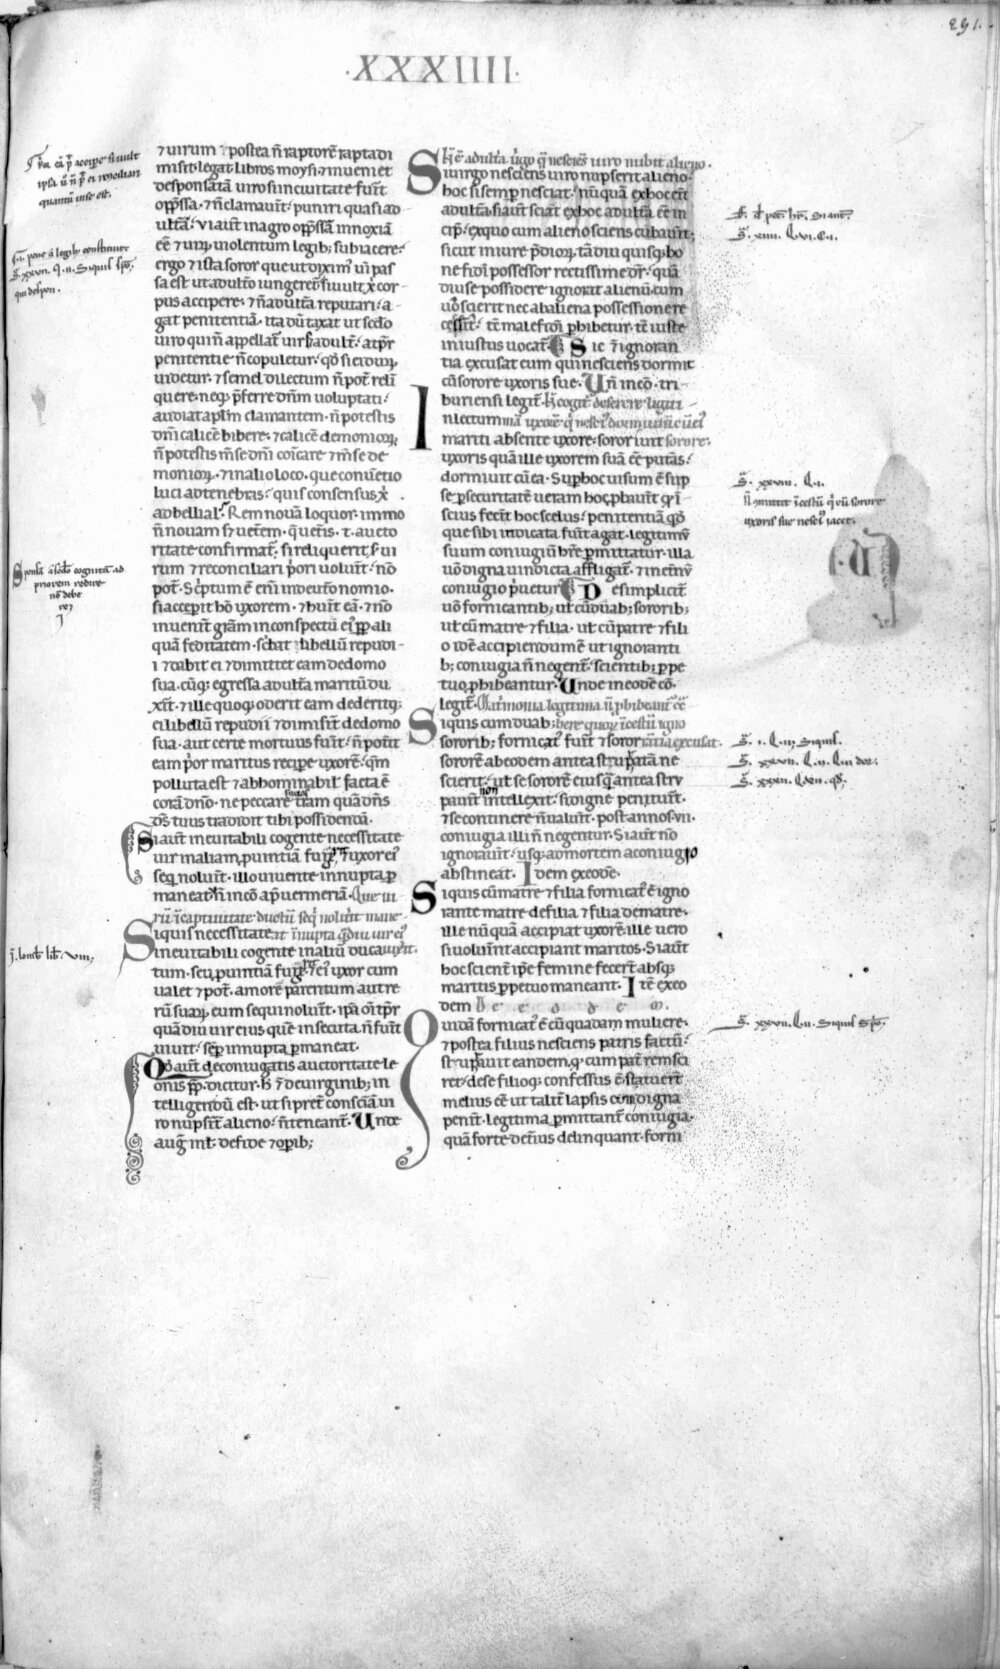 291.
·XXXIIII·
⁊ uirum ⁊ postea ñ raptorẽ rapta di
misit· legat libros moysi· ⁊ inueniet
desponsatã uiro si in ciuitate fuerit
opp̃ssa· ⁊ ñ clamauit· puniri quasi ad
ultã· si aut̃ in agro opp̃ssã innoxiã
eẽ ⁊ uirũ uiolentum legib; subiacere·
ergo ⁊ ista soror que ut diximꝰ ui pas
sa est ut adulto iungeret̃ si uult xp̃i cor
pus accipere· ⁊ ñ adulta reputari· a
gat penitentiã· ita dũtaxat ut sc̃do
uiro qui ñ appellat̃ uir sꝫ adult̃· a tp̃r
penitentie ñ copuletur· qđ si ei durũ
uidetur· ⁊ semel dilectum ñ pot̃ reli
quere· neq; p̃ferre dñm uoluptati·
audiat aplm̃ clamantem· ñ potestis
dñi calicẽ bibere· ⁊ calicẽ demonioꝝ
ñ potestis m̃se dñi cõicare ⁊ m̃se de
monioꝝ· ⁊ in alio loco· que conuẽtio
luci ad tenebras· quis consensus xp̃i
ad bellial· Rem nouã loquor· immo
ñ nouam sꝫ uet̃em· q̃ uet̃is· t· aucto
ritate confirmat̃· si reliquerit ẜ ui
rum ⁊ reconciliari p̃ori uoluit̃· ñõ
pot̃· Scriptum ẽ eñi in deut̃onomio·
si acceꝑit hõ uxorem· ⁊ hũit eã· ⁊ ñõ
inuenit g̃ram in conspectu eiꝰ ꝓp̃ ali
quã feditatem· sc̃bat libellũ repudi
i ⁊ dabit ei ⁊ dimittet eam de domo
sua· cũq; egressa adulta maritũ du
xit̃· ⁊ ille quoq; oderit eam dederitq;
ei libellũ repudii ⁊ dimiserit de domo
sua· aut certe mortuus fuit̃· ñ pot̃it
eam p̃or maritus recipe uxorẽ· q̃m
polluta est ⁊ abhominabil̃ facta ẽ
corã dño· ne peccare facias t̃ram quã dñs
ds̃ tuus tradidit tibi possidendã·
Si aut̃ ineuitabili cogente necessitate
uir in aliam ꝓuintiã fug̃it ⁊ uxor eiꝰ
seq̃ noluit̃· illo uiuente innupta ꝑ
maneat· ñ in cõ apũ uermeriã· Que ui
rũ ĩ captiuitate ductũ seq̃ noluit mane
at ĩnupta q̃diu uir eiꝰ
uixit̃·
Si quis necessitate
ineuitabili cogente in aliũ ducatum
seu ꝓuintiã fug̃it ⁊ eiꝰ uxor cum
ualet ⁊ pot̃· amorẽ parentum aut re
rũ suaꝝ eum sequi noluit̃· ip̃a õi tp̃r
quãdiu uir eius quẽ insecuta ñ fuit
uiuit· sẽp innupta ꝑmaneat·
Qđ aut̃ de coniugatis auctoritate le
onis p̃p̃· dicitur· h̃ ⁊ de uirginib; in
telligendũ est· ut si pret̃ consciã ui
ro nupsit̃ alieno· ñ teneant̃· Unde
aug̃ in l̃· de fide ⁊ oꝑib;
H̃ ẽ adulta uirgo q̃ nesciẽs uiro nubit alieno·
Si uirgo nesciens uiro nupserit alieno·
hoc si semꝑ nesciat· nũquã ex hoc erit
adultã· si aut̃ sciat· ex hoc adultã eẽ in
cip̃· ex quo cum alieno sciens cubauit̃·
sicut in iure p̃dioꝝ· tãdiu quisq; bo
ne fidei possessor rectissime dr̃· quã
diu se possidere ignorat alienũ· cum
uõ scierit nec ab aliena possessione re
cesserit· tẽ male fidei ꝑhibetur· tẽ iuste
iniustus uocat̃· Sic ⁊ ignoran
tia excusat eum qui nesciens dormit
cũ sorore uxoris sue· Uñ in cõ· tri
buriensi legit̃· ñ cogit̃ deserere legiti
mã uxorẽ· q̃ nesciẽs dormiuit cũ
sorore·
In lectum
mariti absente uxore· soror iuit
uxoris quã ille uxorem suã eẽ putãs·
dormiuit cũ ea· Suꝑ hoc uisum ẽ si ip
se ꝑ securitatẽ ueram hoc ꝓbauit̃ q̃ ĩ
scius fecit̃ hoc scelus· penitentiã qđ
que sibi indicata fuit̃ agat· legitimũ
suum coniugiũ hr̃e ꝑmittatur· illa
uõ digna uindicta affligat̃· ⁊ in et̃nũ
coniugio p̃uetur· De simplicit̃
uõ fornicantib; ut̃ cũ duab; sororib;
ut̃ cũ matre ⁊ filia· ut̃ cũ patre ⁊ fili
o idẽ accipiendum ẽ ut ignoranti
b; coniugia ñ negent̃· scientib; ꝑpe
tuo ꝓhibeantur· Unde in eodẽ cõ·
legit̃· Matrimonia legitima ñ ꝓhibeant̃ eẽ
here quoꝝ ĩcestũ igno
rãtia excusat·
Si quis cum duab;
sororib; fornicat̃ fuit̃ ⁊ soror
sororẽ ab eodem antea strupatã ne
scierit· ut̃ se sororẽ eius quã antea stru
pauit̃ non intellexit· si digne penituit̃·
⁊ se continere ñ ualuit̃· post annos· vii·
coniugia illi ñ negentur· Si aut̃ ñõ
ignorauit̃· usq; ad mortem a coniugio
abstineat· Idem ex eodẽ·
Si quis cũ matre ⁊ filia fornicatꝰ ẽ igno
rante matre de filia ⁊ filia de matre·
ille nũquã accipiat uxorẽ· ille uero
si uoluerint accipiant maritos· Si aut̃
hoc scient̃ ip̃e femine fecer̃t absq;
maritis ꝑpetuo maneant· Itẽ ex eo
dem de eodem·
Quidã fornicatꝰ ẽ cũ quadam muliere·
⁊ postea filius nesciens patris factũ·
strupauit eandem· qđ cum pat̃ rem sci
ret· de se filioq; confessus ẽ· statuerũt
melius eẽ ut talit̃ lapsis condigna
penit̃· legitima ꝑmittant̃ coniugia·
quã forte det̃ius delinquant· Forni
quantũ in se est·
ẜ· xxvii· q· ii· Si quis spõ·
qui despon·
Sponsã a sc̃do cognitam ad
priorem redire
nõ debe
re
j· lomb· lib· viii·
ẜ· xxviiii· q· i·
uxoris sue nesciꝰ iacet·
ẜ· i· q· iiii· Si quis·
ẜ· xxvii· q· ii· Si quis spõ·